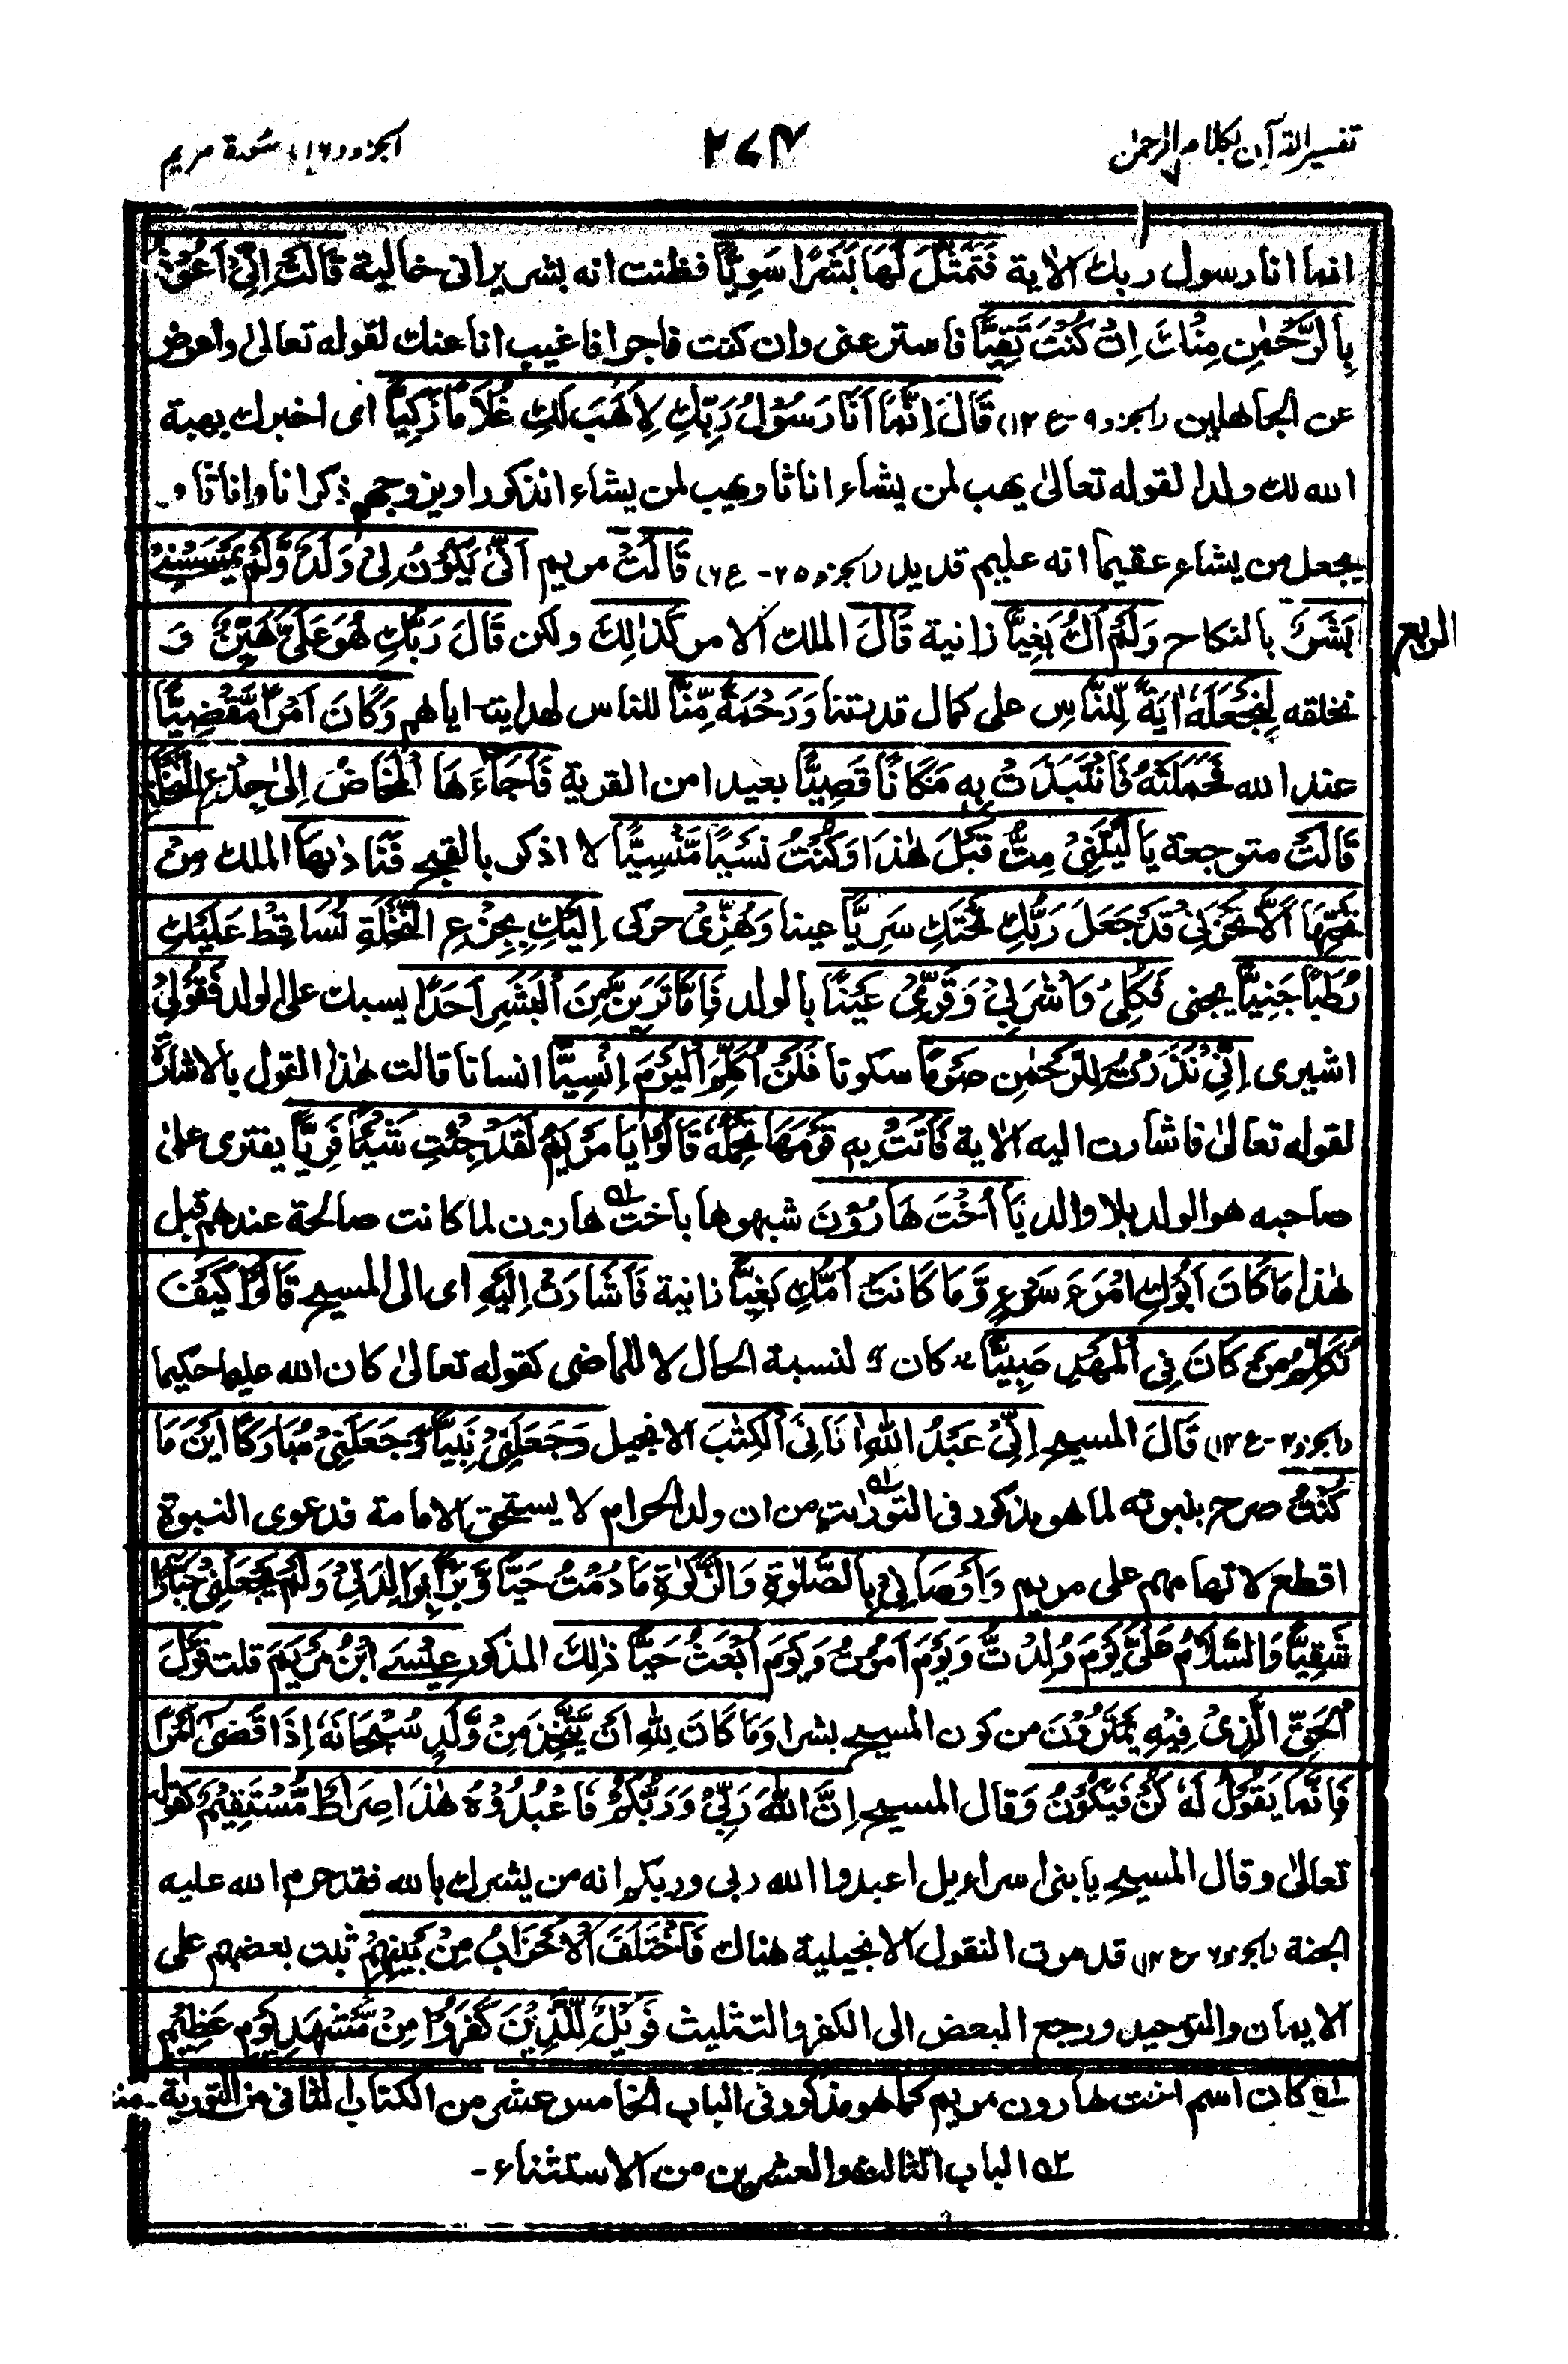 تفسير القرآن بكلام الرحمن
٢٤٧
الجزو (١٦) سورة مريم
انما انا رسول ربك الاية فَتَمَثَّلَ لَهَا بَشَرًا سَوِيًّا فظنت انه بشر يرانى خالية قَالَتْ اِنِّىْ اَعُوْذُ
بِالرَّحْمٰنِ مِنْكَ اِنْ كُنْتَ تَقِيًّا فاستر عنى وان كنت فاجرا فاغيب انا عنك لقوله تعالىٰ واعرض
عن الجاهلين (الجزو ٩-ع ١٣) قَالَ اِنَّمَا اَنَا رَسُوْلُ رَبِّكِ لِاَهَبَ لَكِ غُلَامًا زَكِيًّا اى اخبرك بهبة
الله لك ولدا لقوله تعالىٰ يهب لمن يشاء اناثا ويهب لمن يشاء الذكور او يزوجهم ذكرانا واناثا و
يجعل من يشاء عقيما انه عليم قدير (الجزو ٢٥-ع ٦) قَالَتْ مريم اَنّٰى يَكُوْنُ لِىْ وَلَدٌ وَّلَمْ يَمْسَسْنِىْ
بَشَرٌ بالنكاح وَلَمْ اَكُ بَغِيًّا زانية قَالَ الملك الامر كَذٰلِكَ ولكن قَالَ رَبُّكِ هُوَ عَلَىَّ هَيِّنٌ وَ
الربع
نخلقه لِنَجْعَلَهٗ اٰيَةً لِّلنَّاسِ على كمال قدرتنا وَرَحْمَةً مِّنَّا للناس لهدايته اياهم وَكَانَ اَمْرًا مَّقْضِيًّا
عند الله فَحَمَلَتْهُ فَانْتَبَذَتْ بِهٖ مَكَانًا قَصِيًّا بعيدا من القرية فَاَجَآءَهَا الْمَخَاضُ اِلىٰ جِذْعِ النَّخْلَةِ
قَالَتْ متوجعة يَا لَيْتَنِىْ مِتُّ قَبْلَ هٰذَا وَكُنْتُ نَسْيًا مَّنْسِيًّا لا اذكر بالقبح فَنَادٰىهَا الملك مِنْ
تَحْتِهَا اَلَّا تَحْزَنِىْ قَدْ جَعَلَ رَبُّكِ تَحْتَكِ سَرِيًّا عينا وَهُزِّىْ حركى اِلَيْكِ بِجِذْعِ النَّخْلَةِ تُسَاقِطْ عَلَيْكِ
رُطَبًا جَنِيًّا يجنى فَكُلِىْ وَاشْرَبِىْ وَقَرِّىْ عَيْنًا بالولد فَاِمَّا تَرَيِنَّ مِنَ الْبَشَرِ اَحَدًا يسبك على الولد فَقُوْلِىْ
اشيرى اِنِّىْ نَذَرْتُ لِلرَّحْمٰنِ صَوْمًا سكوتا فَلَنْ اُكَلِّمَ الْيَوْمَ اِنْسِيًّا انسانا قالت هٰذا القول بالاشارة
لقوله تعالىٰ فاشارت اليه الاية فَاَتَتْ بِهٖ قَوْمَهَا تَحْمِلُهٗ قَالُوْا يَا مَرْيَمُ لَقَدْ جِئْتِ شَيْئًا فَرِيًّا يفترى علىٰ
صاحبه هو الولد بلا والد يَا اُخْتَ هَارُوْنَ شبهوها باخت له هارون لما كانت صالحة عندهم قبل
هٰذا مَا كَانَ اَبُوْكِ امْرَءَ سَوْءٍ وَّمَا كَانَتْ اُمُّكِ بَغِيًّا زانية فَاَشَارَتْ اِلَيْهِ اى الى المسيح قَالُوْا كَيْفَ
نُكَلِّمُ مَنْ كَانَ فِى الْمَهْدِ صَبِيًّا "كان" لنسبة الحال لا للماضى كقوله تعالىٰ كان الله عليما حكيما
(الجزو ٣-ع ١٣) قَالَ المسيح اِنِّىْ عَبْدُ اللهِ اٰتَانِىَ الْكِتٰبَ الانجيل وَجَعَلَنِىْ نَبِيًّا وَّجَعَلَنِىْ مُبَارَكًا اَيْنَ مَا
كُنْتُ صرح بنبوته لما هو مذكور فى التورٰىت من ان ولد الحرام لا يستحق الامامة فدعوى النبوة
اقطع لاتهامهم على مريم وَاَوْصَانِىْ بِالصَّلٰوةِ وَالزَّكٰوةِ مَا دُمْتُ حَيًّا وَّبَرًّا بِوَالِدَتِىْ وَلَمْ يَجْعَلْنِىْ جَبَّارًا
شَقِيًّا وَالسَّلَامُ عَلَىَّ يَوْمَ وُلِدْتُّ وَيَوْمَ اَمُوْتُ وَيَوْمَ اُبْعَثُ حَيًّا ذٰلِكَ المذكور عِيْسَى ابْنُ مَرْيَمَ قلت قَوْلَ
الْحَقِّ الَّذِىْ فِيْهِ يَمْتَرُوْنَ من كون المسيح بشرا وَمَا كَانَ لِلّٰهِ اَنْ يَّتَّخِذَ مِنْ وَّلَدٍ سُبْحَانَهٗ اِذَا قَضٰى اَمْرًا
فَاِنَّمَا يَقُوْلُ لَهٗ كُنْ فَيَكُوْنُ وَقال المسيح اِنَّ اللهَ رَبِّىْ وَرَبُّكُمْ فَاعْبُدُوْهُ هٰذَا صِرَاطٌ مُّسْتَقِيْمٌ كقوله
تعالىٰ وقال المسيح يا بنى اسراءيل اعبدوا الله ربى وربكم انه من يشرك بالله فقد حرم الله عليه
الجنة (الجزو ٦-ع ١٤) قد مرت النقول الانجيلية هناك فَاخْتَلَفَ الْاَحْزَابُ مِنْ بَيْنِهِمْ ثبت بعضهم على
الايمان والتوحيد ورجع البعض الى الكفر والتثليث فَوَيْلٌ لِّلَّذِيْنَ كَفَرُوْا مِنْ مَّشْهَدِ يَوْمٍ عَظِيْمٍ
له كان اسم اخت هارون مريم كما هو مذكور فى الباب الخامس عشر من الكتاب الثانى من التورٰية-منه
٢ه الباب الثالث والعشرين من الاستثناء-